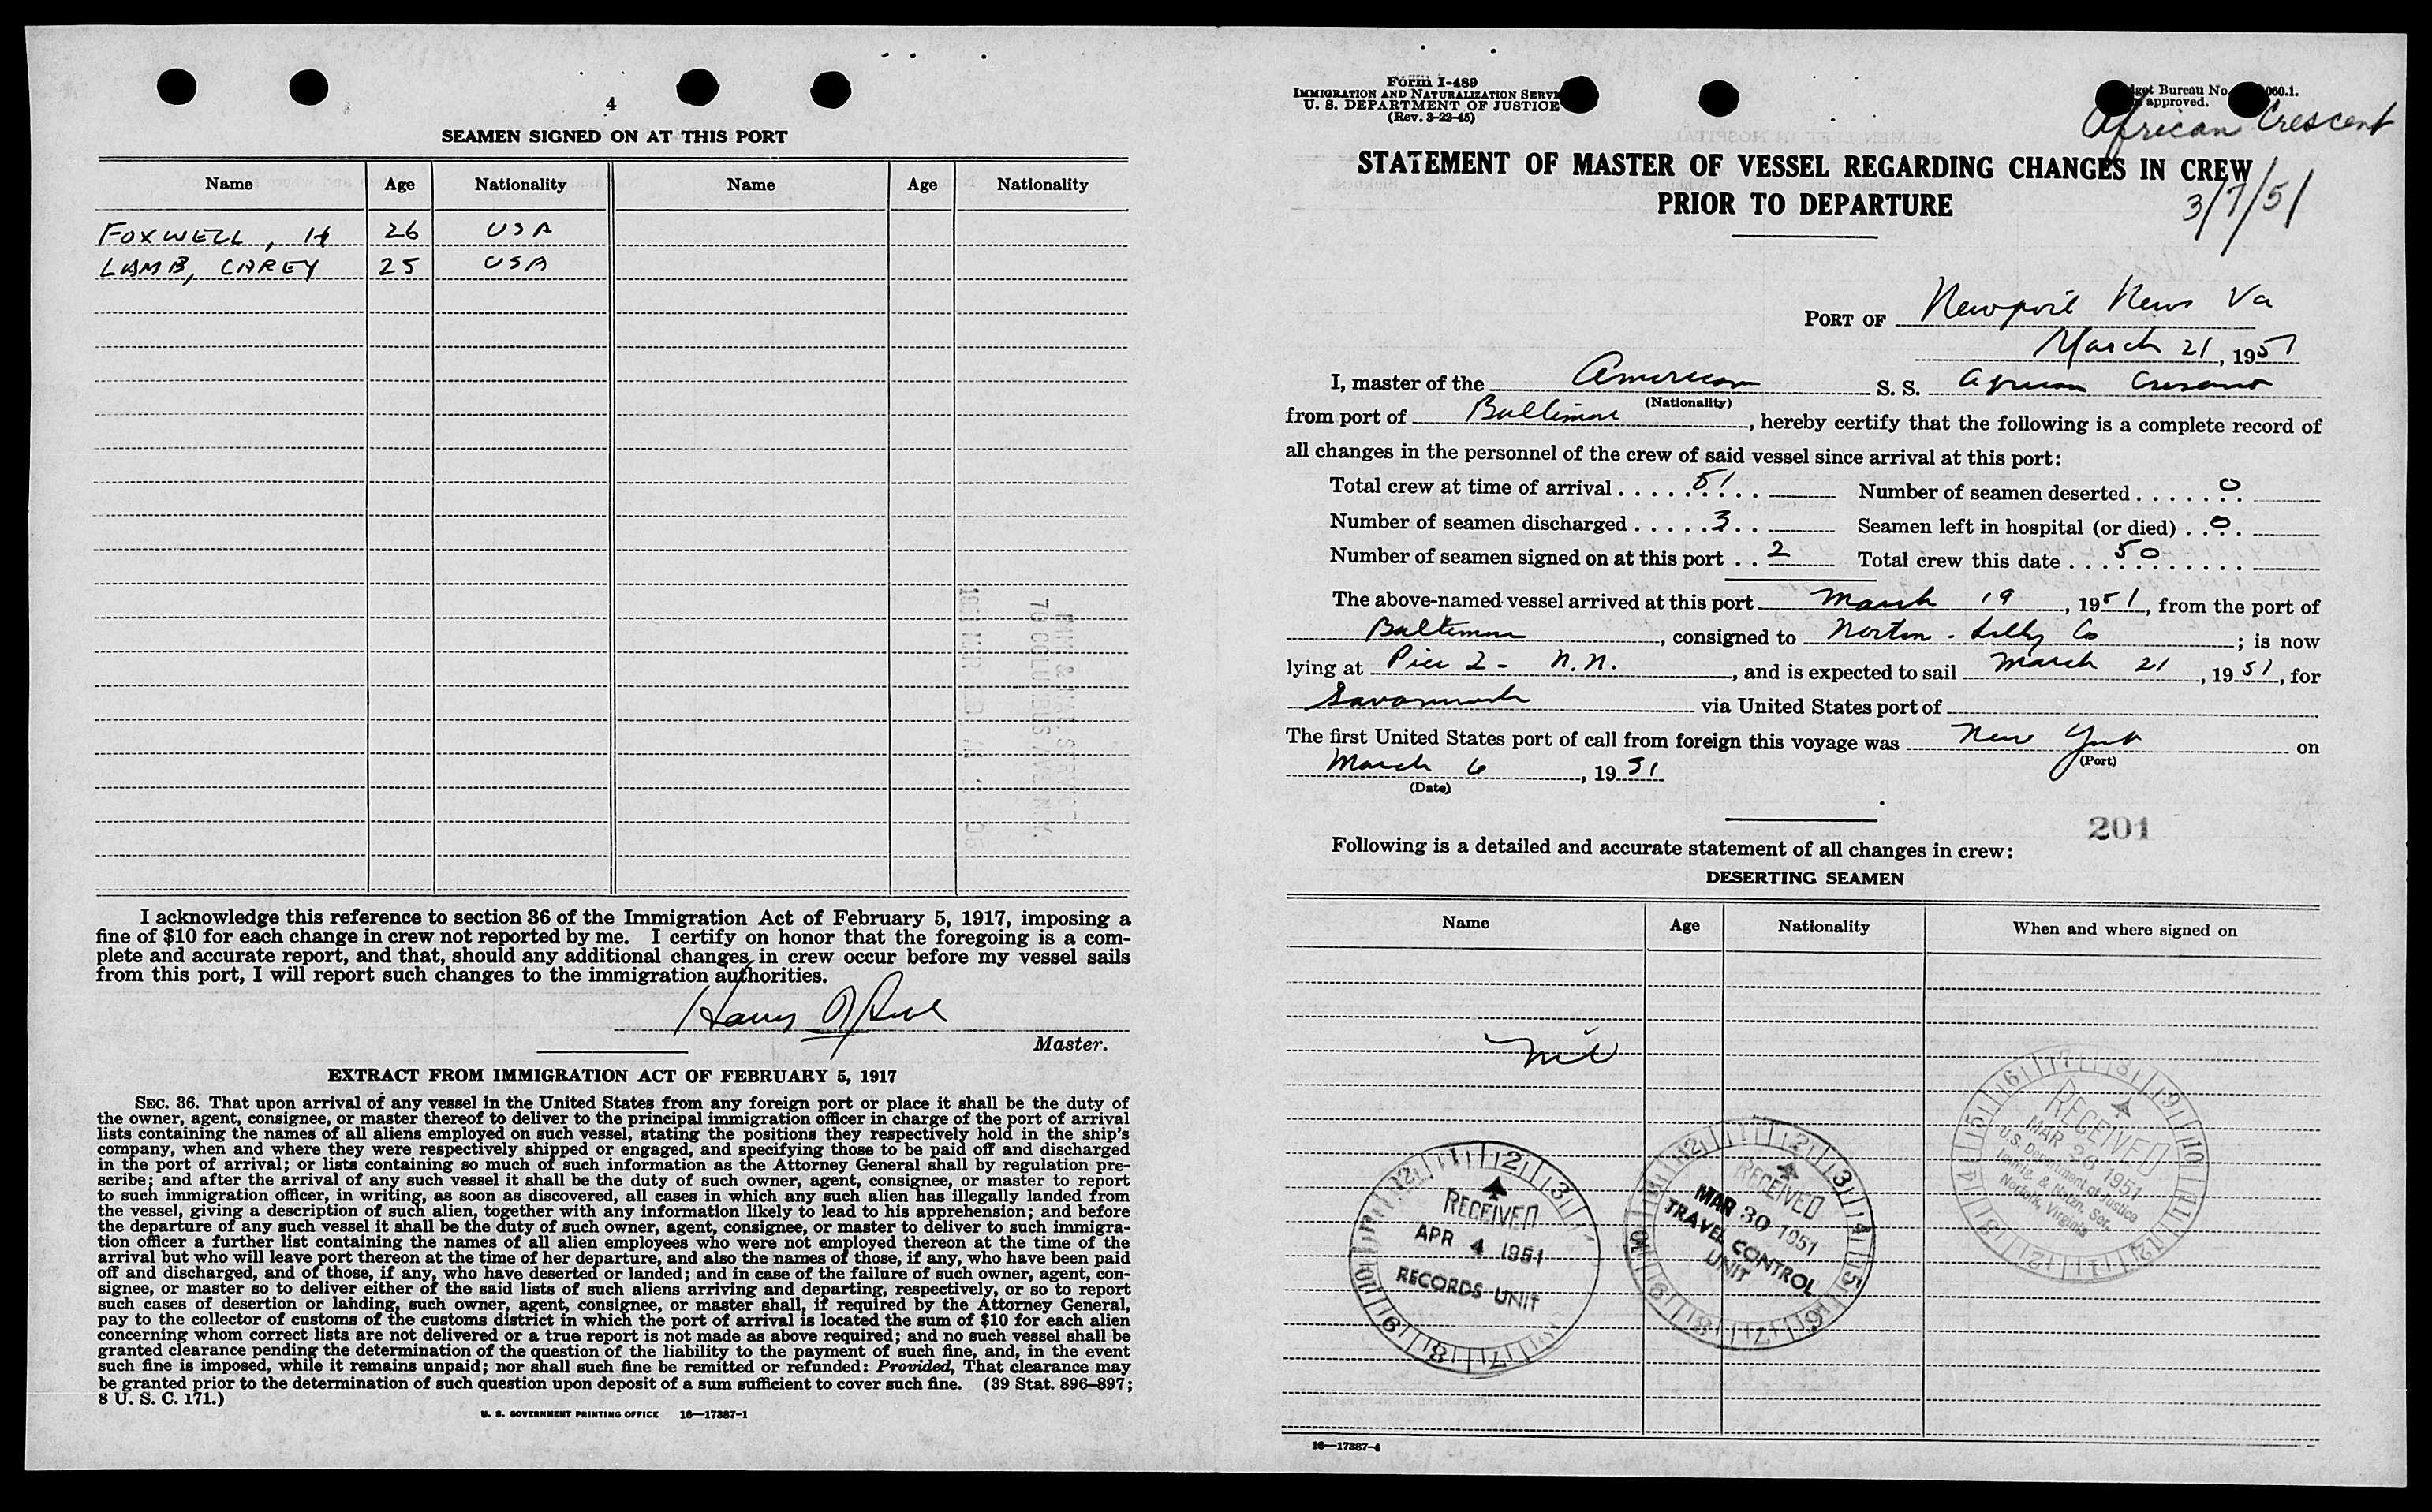 4
SEAMEN SIGNED ON AT THIS PORT
Name Age Nationality Name Age Nationality
FOXWELL, H 26 USA
LAMB, CAREY 25 USA
I acknowledge this reference to section 36 of the Immigration Act of February 5, 1917, imposing a
fine of $10 for each change in crew not reported by me. I certify on honor that the foregoing is a com-
plete and accurate report, and that, should any additional changes in crew occur before my vessel sails
from this port, I will report such changes to the immigration authorities.
Harry
Master.
EXTRACT FROM IMMIGRATION ACT OF FEBRUARY 5, 1917
SEC. 36. That upon arrival of any vessel in the United States from any foreign port or place it shall be the duty of
the owner, agent, consignee, or master thereof to deliver to the principal immigration officer in charge of the port of arrival
lists containing the names of all aliens employed on such vessel, stating the positions they respectively hold in the ship's
company, when and where they were respectively shipped or engaged, and specifying those to be paid off and discharged
in the port of arrival; or lists containing so much of such information as the Attorney General shall by regulation pre-
scribe; and after the arrival of any such vessel it shall be the duty of such owner, agent, consignee, or master to report
to such immigration officer, in writing, as soon as discovered, all cases in which any such alien has illegally landed from
the vessel, giving a description of such alien, together with any information likely to lead to his apprehension; and before
the departure of any such vessel it shall be the duty of such owner, agent, consignee, or master to deliver to such immigra-
tion officer a further list containing the names of all alien employees who were not employed thereon at the time of the
arrival but who will leave port thereon at the time of her departure, and also the names of those, if any, who have been paid
off and discharged, and of those, if any, who have deserted or landed; and in case of the failure of such owner, agent, con-
signee, or master so to deliver either of the said lists of such aliens arriving and departing, respectively, or so to report
such cases of desertion or landing, such owner, agent, consignee, or master shall, if required by the Attorney General,
pay to the collector of customs of the customs district in which the port of arrival is located the sum of $10 for each alien
concerning whom correct lists are not delivered or a true report is not made as above required; and no such vessel shall be
granted clearance pending the determination of the question of the liability to the payment of such fine, and, in the event
such fine is imposed, while it remains unpaid; nor shall such fine be remitted or refunded: Provided, That clearance may
be granted prior to the determination of such question upon deposit of a sum sufficient to cover such fine. (39 Stat. 896–897;
8 U. S. C. 171.)
U. S. GOVERNMENT PRINTING OFFICE 16—17387-1
Form I-489
IMMIGRATION AND NATURALIZATION
U. S. DEPARTMENT OF JUSTICE
(Rev. 3-22-45)
Bureau No. 060.1.
approved.
African Crescent
3/7/51
STATEMENT OF MASTER OF VESSEL REGARDING CHANGES IN CREW
PRIOR TO DEPARTURE
PORT OF Newport News Va
March 21, 1951
I, master of the American S. S. African Crescent
(Nationality)
from port of Baltimore, hereby certify that the following is a complete record of
all changes in the personnel of the crew of said vessel since arrival at this port:
Total crew at time of arrival 51 Number of seamen deserted 0
Number of seamen discharged 3 Seamen left in hospital (or died) 0
Number of seamen signed on at this port 2 Total crew this date 50
The above-named vessel arrived at this port March 19, 1951, from the port of
Baltimore, consigned to Norton - Lilly Co; is now
lying at Pier 2 - N.N., and is expected to sail March 21, 1951, for
Savannah via United States port of
The first United States port of call from foreign this voyage was New York on
(Port)
March 6, 1951
(Date)
201
Following is a detailed and accurate statement of all changes in crew:
DESERTING SEAMEN
Name Age Nationality When and where signed on
Nil
RECEIVED
APR 4 1951
RECORDS UNIT
RECEIVED
MAR 30 1951
TRAVEL CONTROL
UNIT
RECEIVED
MAR 26 1951
U.S. Department of Justice
Immig. & Natzn. Ser.
Norfolk, Virginia
16—17387-4